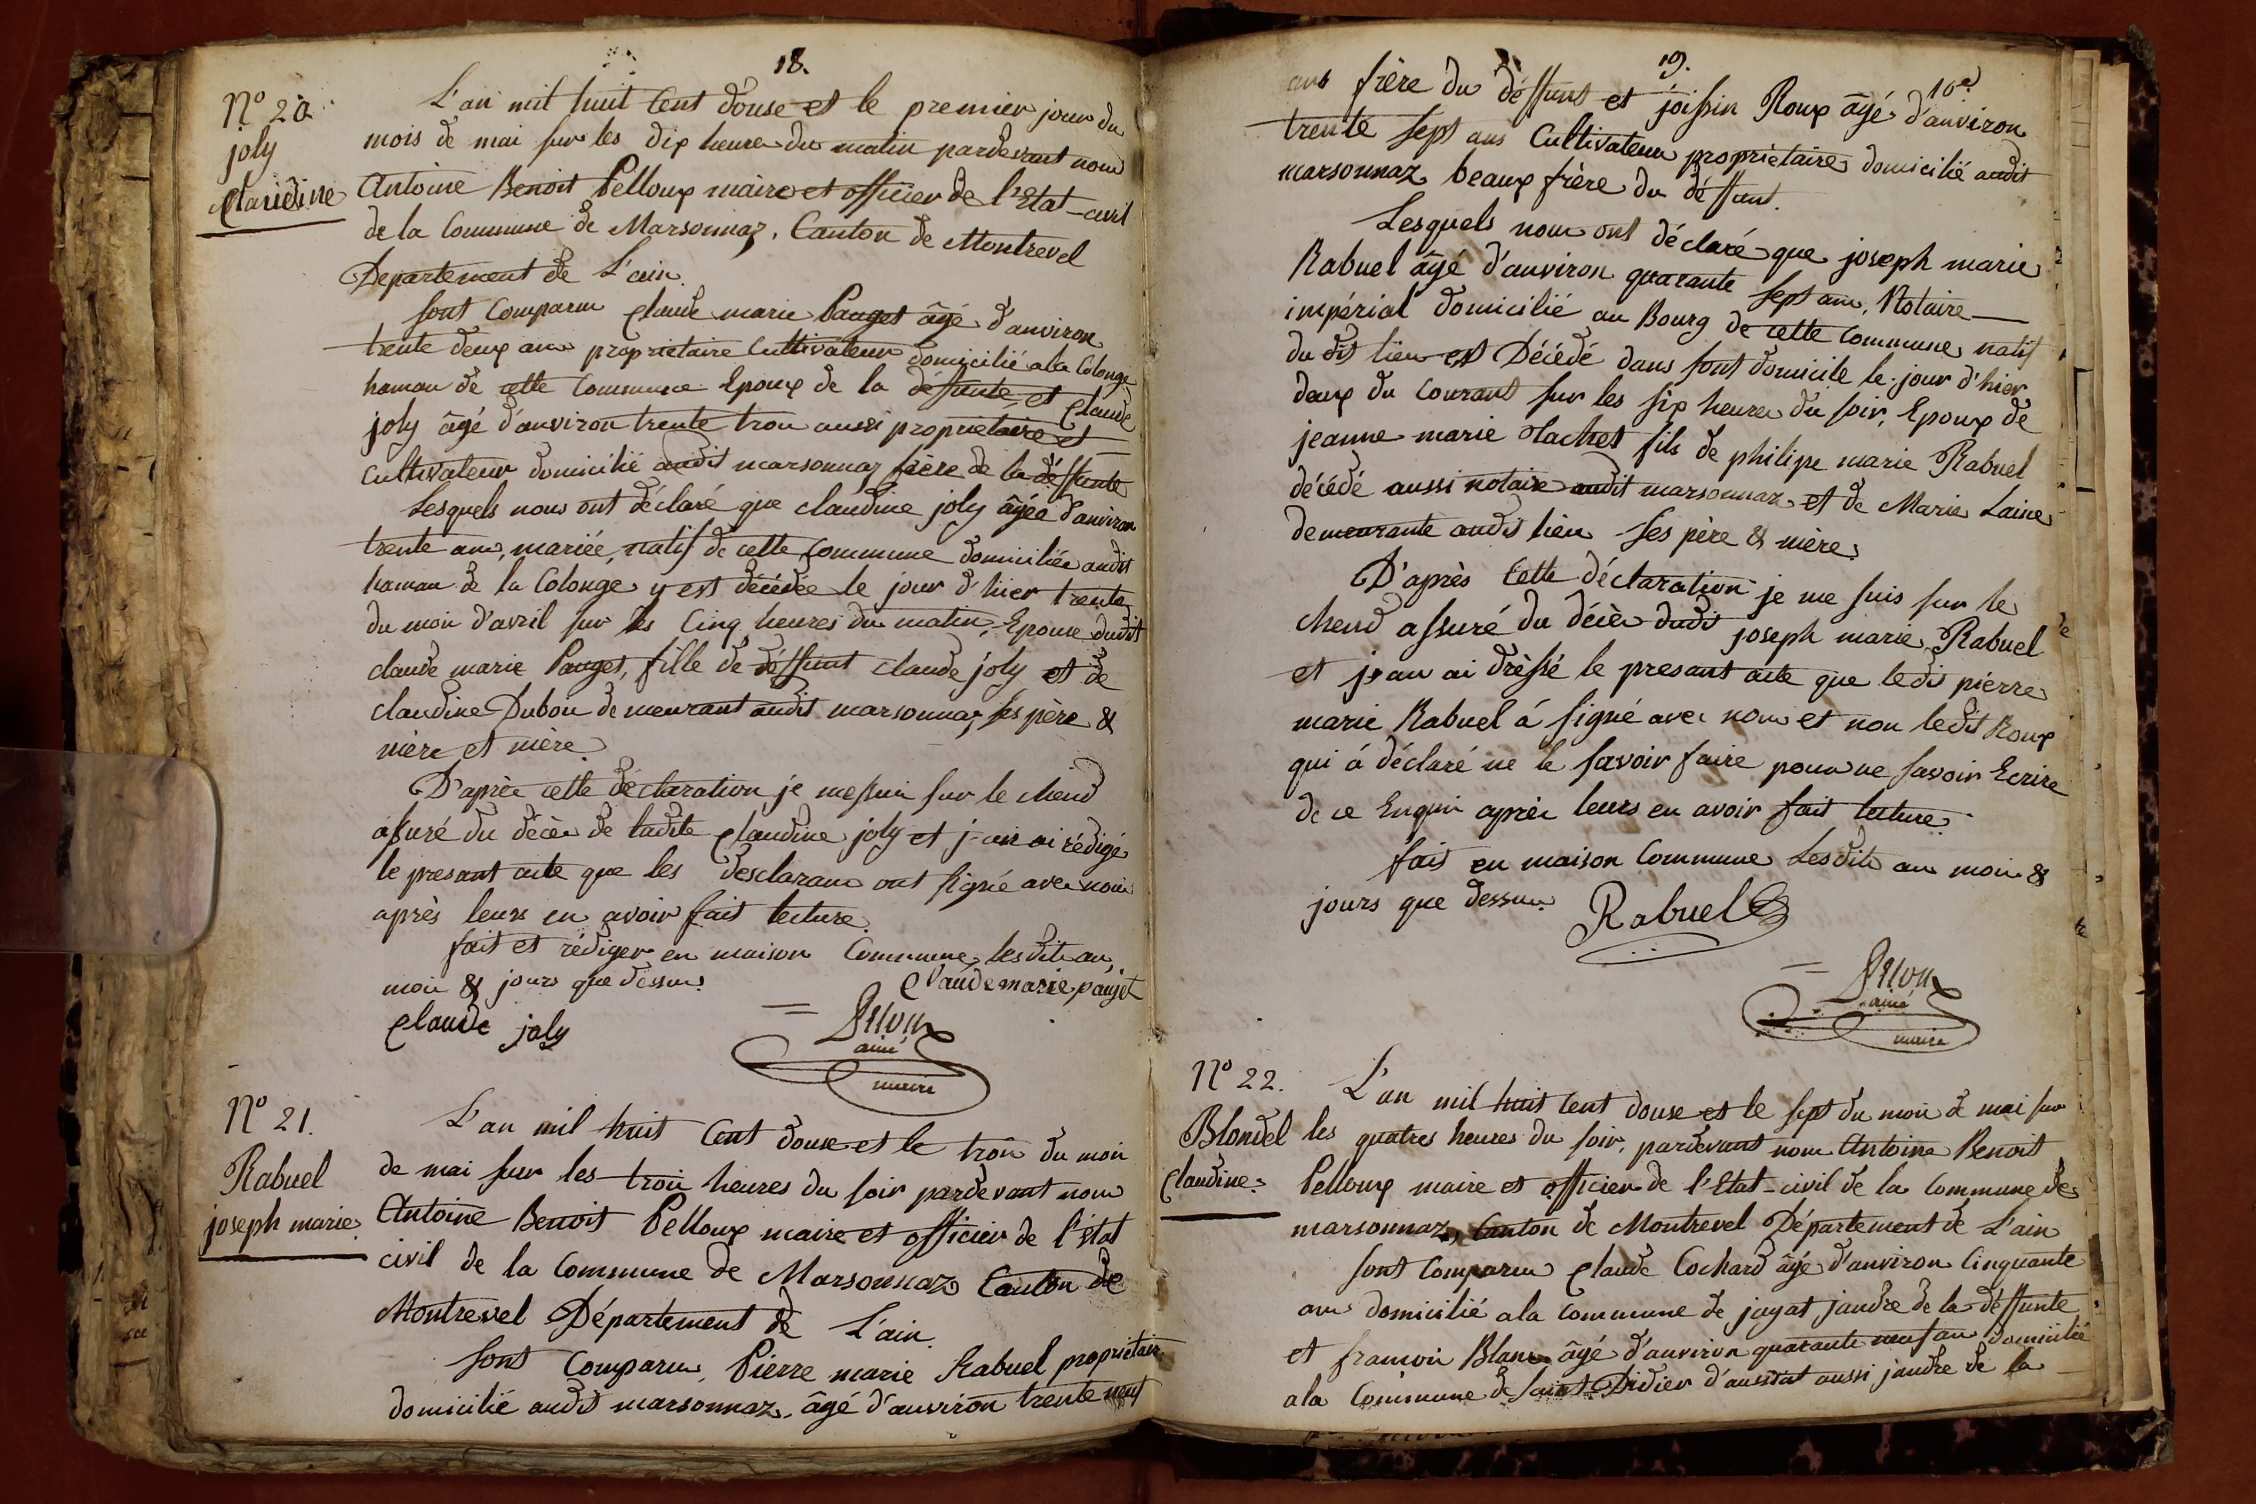 18.
N.º 20.
joly
claudine
L'an mil huit Cent douse et le premier jour du
mois de mai sur les dix heures du matin pardevant nous
Antoine Benoit Pelloux maire et officier de l'Etat-civil
de la Commune de Marsonnaz, Canton de Montrevel
Departement de L'ain.
sont Comparus claude marie Pauget âgé d'anviron
trente deux ans proprietaire Cultivateur domicilié a la Colonge
hamau de cette Commune Epoux de la déffunte, et Claude
joly âgé d'anviron trente trois aussi proprietaire et
Cultivateur domicilié audit marsonnaz frère de la déffunte
Lesquels nous ont déclaré que claudine joly âgée d'anviron
trente ans, mariée, natif de cette Commune domiciliée audit
hamau de la Colonge y est décédée le jour d'hier trente
du mois d'avril sur les Cinq heures du matin, Epouse dudit
claude marie Pauget, fille de déffunt claude joly et de
claudine Dubou demeurant audit marsonnaz, ses père &
mère et mère.
D'après cette déclaration je me suis sur le chend
assuré du décès de ladite claudine joly et j'en ai rédigé
le presant acte que les desclarans ont signé avec nous
après leurs en avoir fait lecture
fait et rédiger en maison Commune, lesdits an,
mois & jours que dessus.
claude marie paujet
claude joly
ainé
maire
N.º 21.
Rabuel
joseph marie
L'an mil huit Cent douse et le trois du mois
de mai sur les trois heures du soir pardevant nous
Antoine Benoit Pelloux maire et officier de l'état
civil de la Commune de Marsonnaz Canton de
Montrevel Département de L'ain.
sont Comparus, Pierre marie Rabuel proprietaire
domicilié audit marsonnaz, âgé d'anviron trente neuf
19.
10e
ans frère du déffunt et joissin Roux âgé d'anviron
trente sept ans Cultivateur proprietaire domicilié audit
marsonnaz beaux frère du déffunt.
Lesquels nous ont déclaré que joseph marie
Rabuel âgé d'anviron quarante sept ans, Notaire
impérial domicilié au Bourg de cette Commune natif
du dit lieu est Décédé dans sont domicile le jour d'hier
deux du Courant sur les six heures du soir, Epoux de
jeanne marie Tachet fils de philipe marie Rabuel
décédé aussi notaire audit marsonnaz et de Marie Laine
demeurante audit lieu ses père & mère.
D'après cette déclaration je me suis sur le
chend assuré du décès dudit joseph marie Rabuel
et j'an ai drèssé le presant acte que ledit pierre
marie Rabuel á signé avec nous et non ledit Roux
qui á déclaré ne le savoir faire pour ne savoir Ecrire
de ce Enquis après leurs en avoir fait lecture.
fait en maison Commune Lesdits an mois &
jours que dessus.
Rabuel
ainé
maire
N.º 22.
Blondel
claudine.
L'an mil huit Cent douse et le sept du mois de mai sur
les quatres heures du soir, pardevant nous Antoine Benoit
Pelloux maire et officier de l'Etat-civil de la Commune de
marsonnaz, Canton de Montrevel Département de L'ain
sont Comparus claude Cochard âgé d'anviron Cinquante
ans domicilié a la Commune de jayat jandre de la déffunte
et francois Blanc âgé d'anviron quarante neuf ans domicilié
a la Commune de saint Didier d'aussiat aussi jandre de la